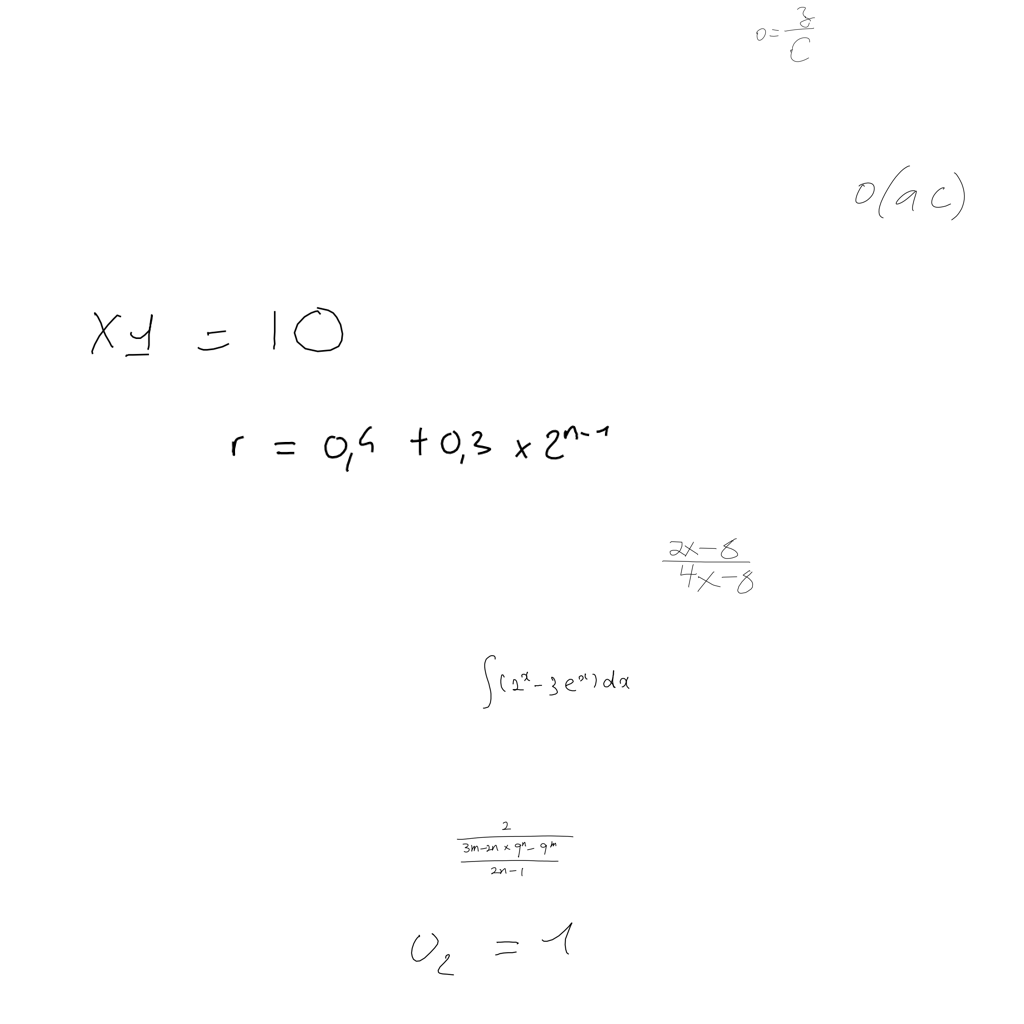 0 = \frac{3}{C}
0(ac)
x1 = 10
r = 0,4 + 0,3 x 2^{n-1}
\frac{2x-8}{4x-8}
\int (2^x - 3e^x) dx
\frac{2}{\frac{3m-2n \times 9^n - 9^m}{2n-1}}
0_2 = 1